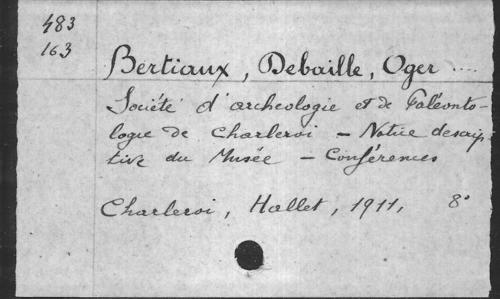 483
163
Bertiaux, Debaille, Oger ....
Société d'archéologie et de Paléonto-
logie de Charleroi – Notice descrip-
tive du Musée – Conférences
Charleroi, Hallet, 1911, 8°